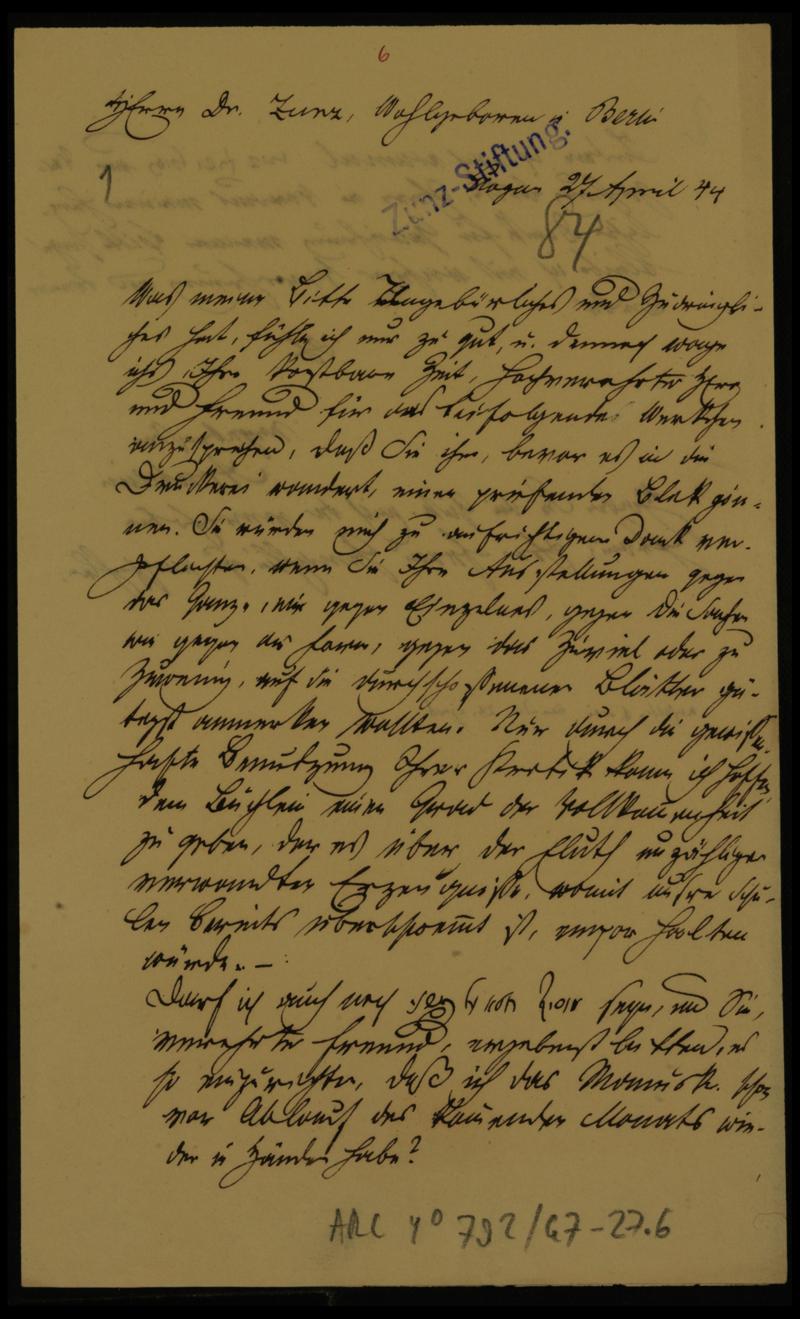 6
Herrn Dr. Zunz, Wohlgeboren in Berlin
Zunz-Stiftung.
1
Glogau 27 April 44
84
Was meine Bitte Ungebürliches und Zudringli-
ches hat, fühle ich nur zu gut, u. dennoch wage
ichs, Ihre kostbare Zeit, hochverehrter Herr
und Freund für das beifolgende Werkchen
anzusprechen, daß Sie ihm, bevor es in die
Druckerei wandert, einen prüfenden Blick gön-
nen. Sie würden mich zu aufrichtigem Dank ver-
pflichten, wenn Sie Ihre Ausstellungen gegen
das Ganze, wie gegen Einzelnes, gegen die Sache
wie gegen die Form, gegen das Zuviel oder zu
Zuwenig, auf die durchschossenen Blätter gü-
tigst anmerken wollten. Nur durch die gewissen-
hafte Benutzung Ihrer Kritik kann ich hoffen
dem Büchlein einen Grad der Vollkommenheit
zu geben, der es über der Fluth unzähliger
verwandter Erzeugnisse, womit unsre Schu-
len bereits überschwemmt ist, empor halten
würde. –
Darf ich auch noch sein, und Sie,
verehrter Freund, ergebenst bitten, es
so einzurichten, daß ich das Manusk. schon
vor Ablauf des kommenden Monats wie-
der in Händen habe?
ARC 4° 792/G7-27.6